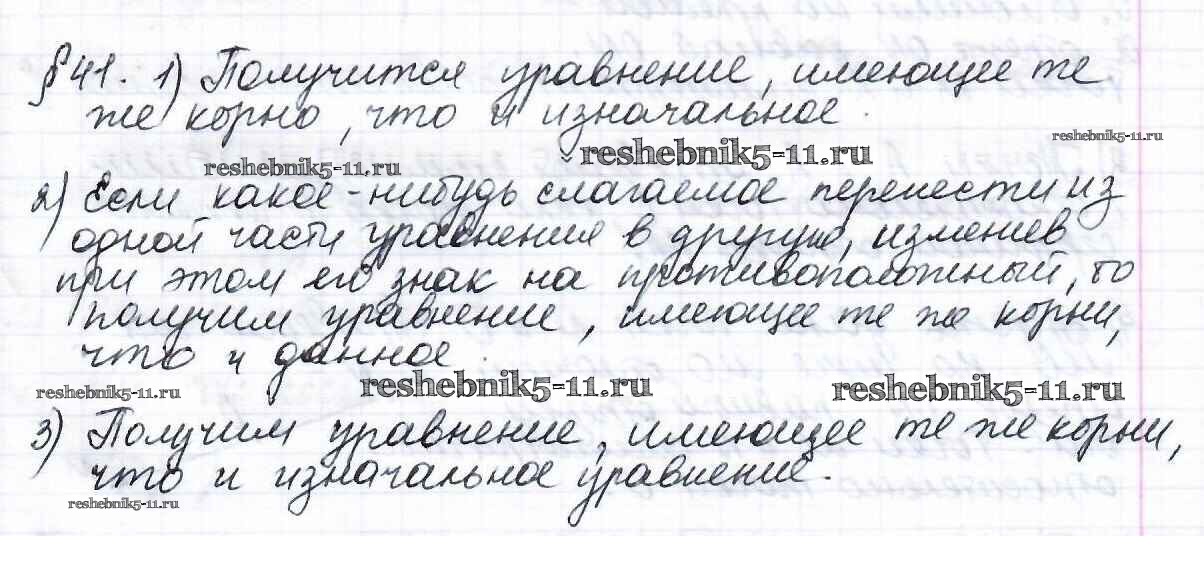 §41. 1) Получится уравнение, имеющее те
же корню, что и изначальное.
reshebnik5-11.ru
reshebnik5-11.ru
reshebnik5-11.ru
2) Если какое-нибудь слагаемое перенести из
одной части уравнения в другую, изменив
при этом его знак на противоположный, то
получим уравнение, имеющее те же корни,
что и данное.
reshebnik5-11.ru
reshebnik5-11.ru
reshebnik5-11.ru
3) Получим уравнение, имеющее те же корни,
что и изначальное уравнение.
reshebnik5-11.ru